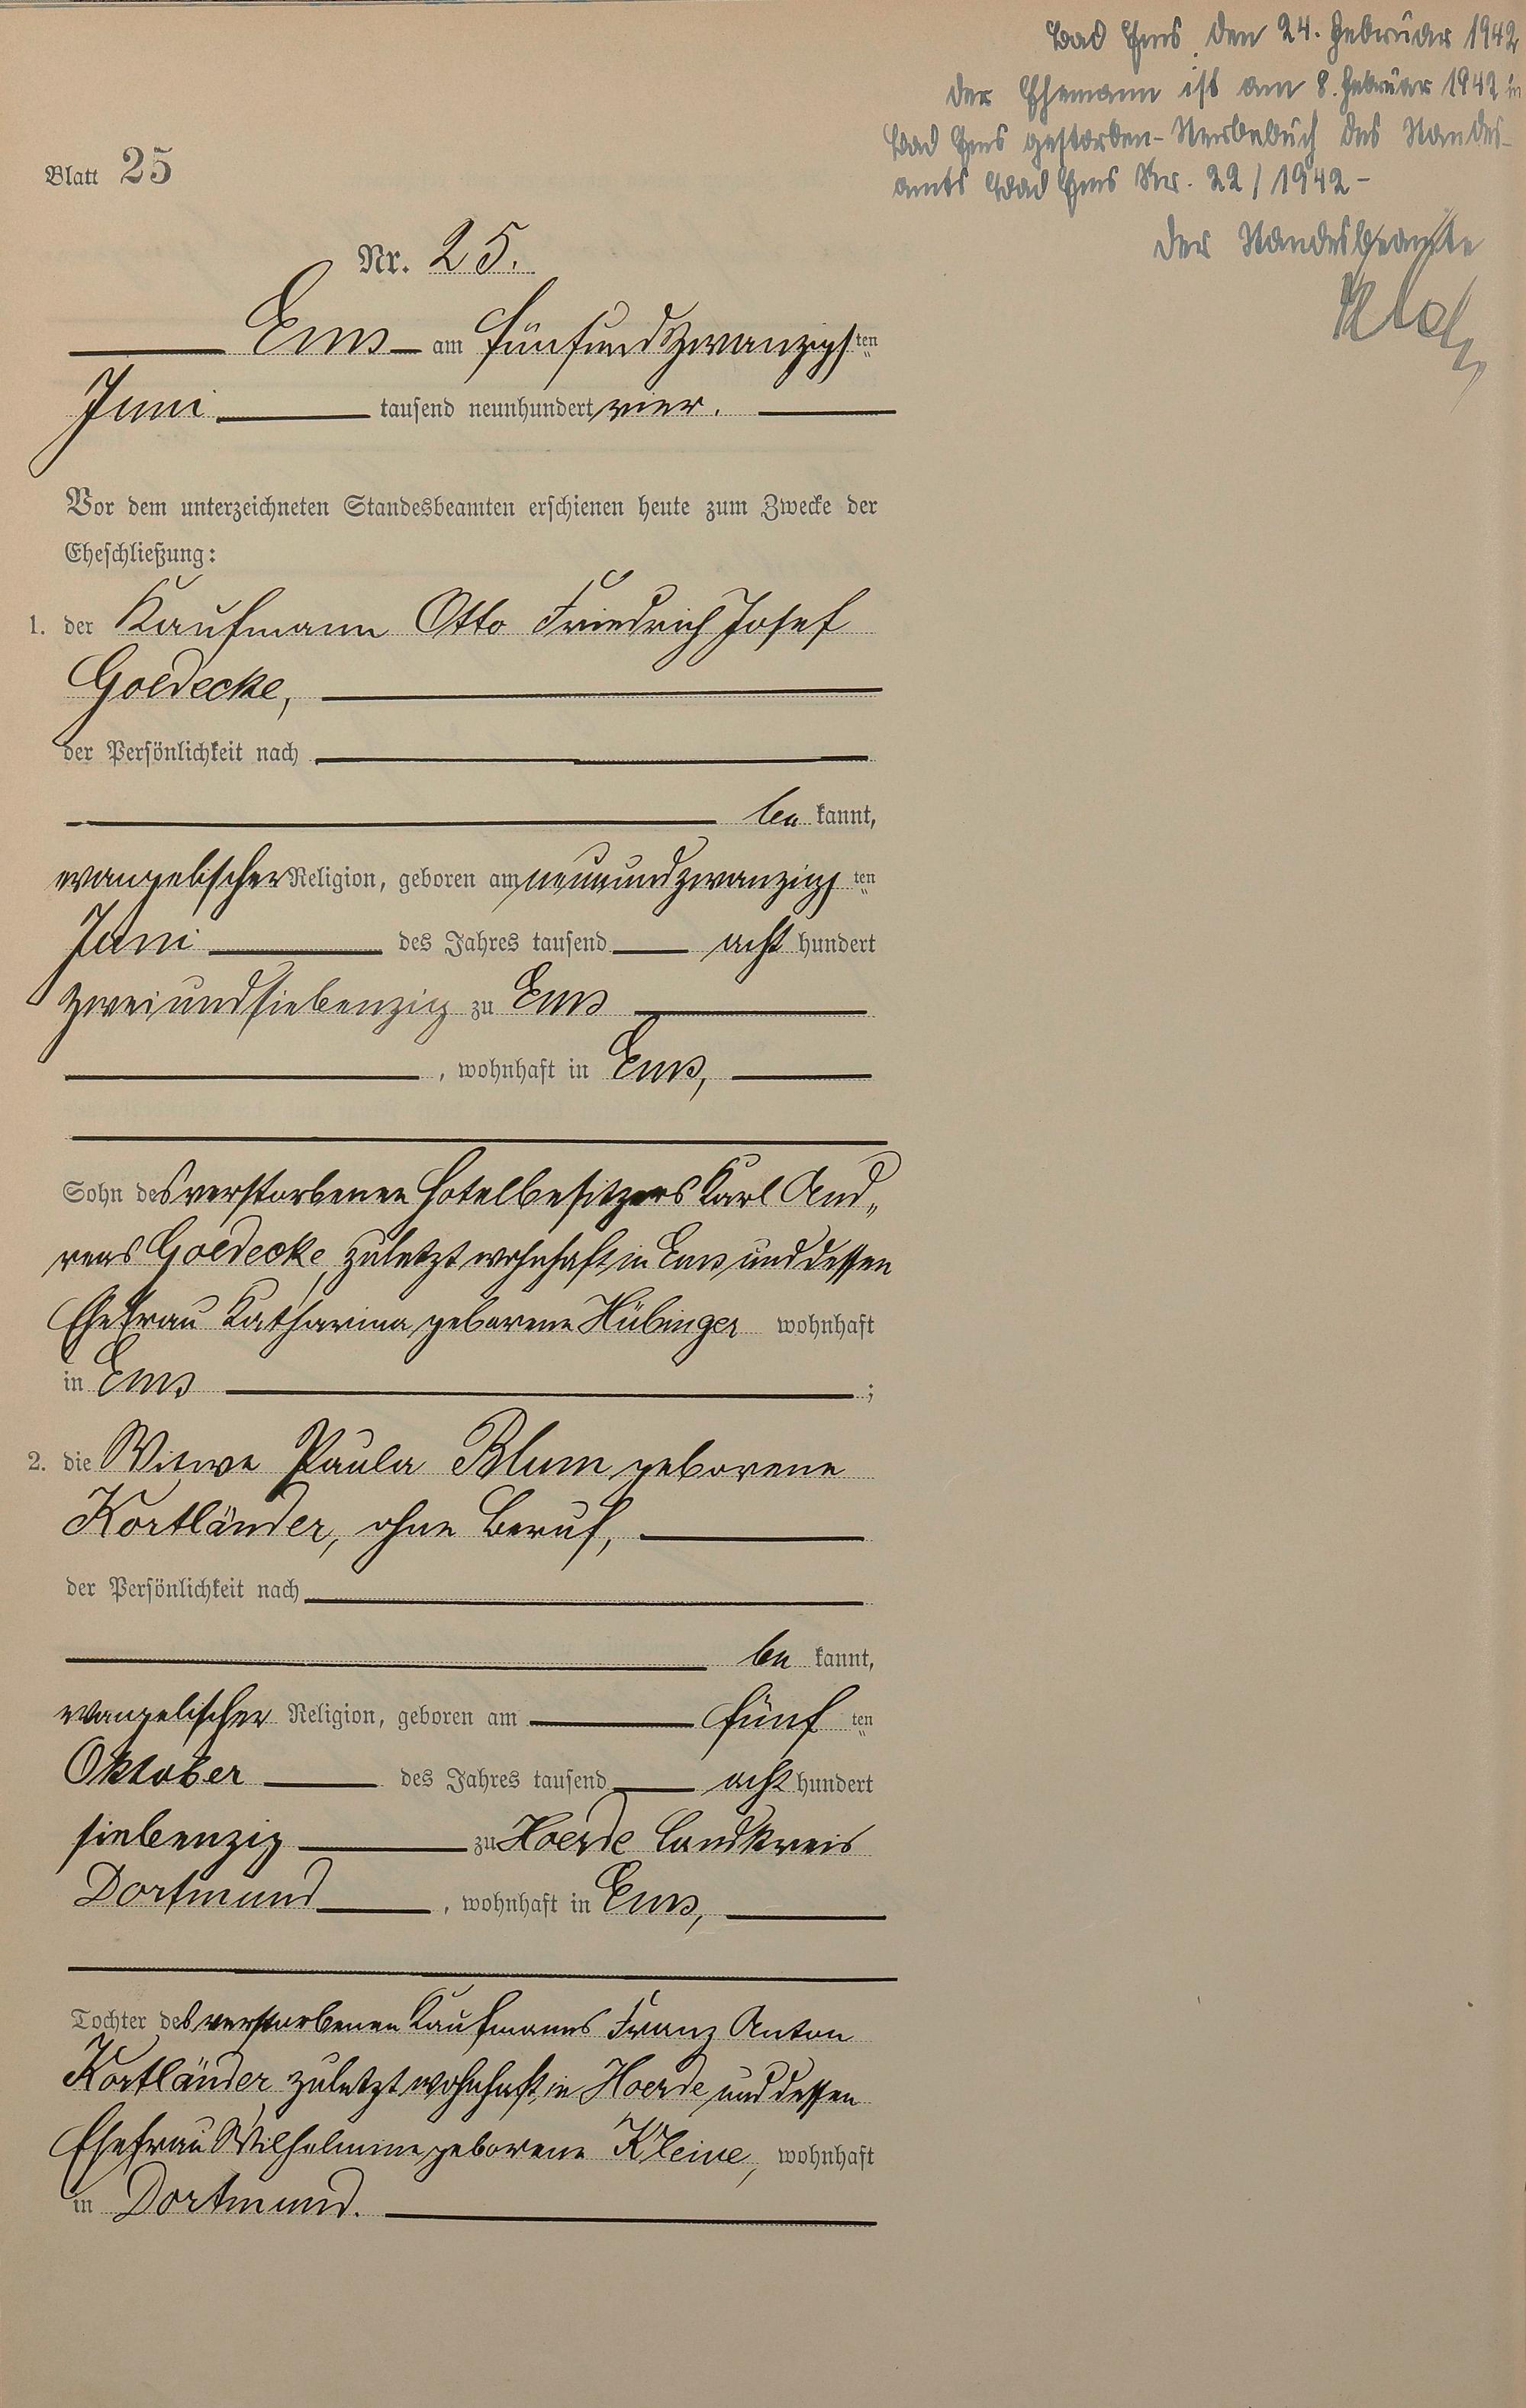 Bad Ems, den 24. Februar 1942
Der Ehemann ist am 8. Februar 1942 in
Bad Ems gestorben - Sterbebuch des Standes-
amts Bad Ems Nr. 22/1942 -
Der Standesbeamte
Blatt 25
Nr. 25.
Ems am fünfundzwanzigsten
Juni tausend neunhundert vier.
Vor dem unterzeichneten Standesbeamten erschienen heute zum Zwecke der
Eheschließung:
1. der Kaufmann Otto Friedrich Josef
Goedecke,
der Persönlichkeit nach
be kannt,
evangelischer Religion, geboren am neunundzwanzigsten
Juni des Jahres tausend acht hundert
zweiundsiebenzig zu Ems
, wohnhaft in Ems,
Sohn des verstorbenen Hotelbesitzers Karl And„
reas Goedecke, zuletzt wohnhaft in Ems und dessen
Ehefrau Katharina geborene Hübinger wohnhaft
in Ems ;
2. die Witwe Paula Blum geborene
Kortländer, ohne Beruf,
der Persönlichkeit nach
be kannt,
evangelischer Religion, geboren am fünften
Oktober des Jahres tausend acht hundert
siebenzig zu Hoerde Landkreis
Dortmund , wohnhaft in Ems,
Tochter des verstorbenen Kaufmanns Franz Anton
Kortländer, zuletzt wohnhaft in Hoerde und dessen
Ehefrau Wilhelmine geborene Kleine, wohnhaft
in Dortmund.